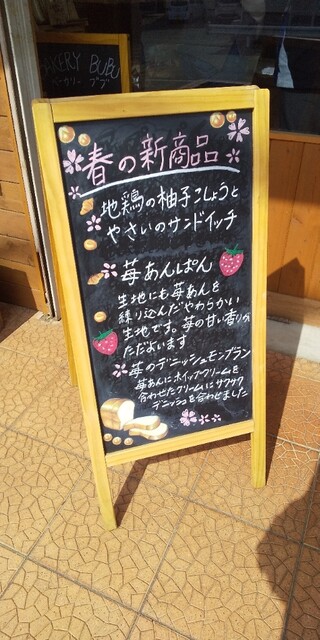 BAKERY BUBU
ベーカリー ブブ
春の新商品
地鶏の柚子こしょうと
やさいのサンドイッチ
苺あんぱん
生地にも苺あんを
練り込んだやわらかい
生地です。苺の甘い香りが
ただよいます
苺のデニッシュモンブラン
苺あんにホイップクリームを
合わせたクリームにサクサク
デニッシュを合わせました